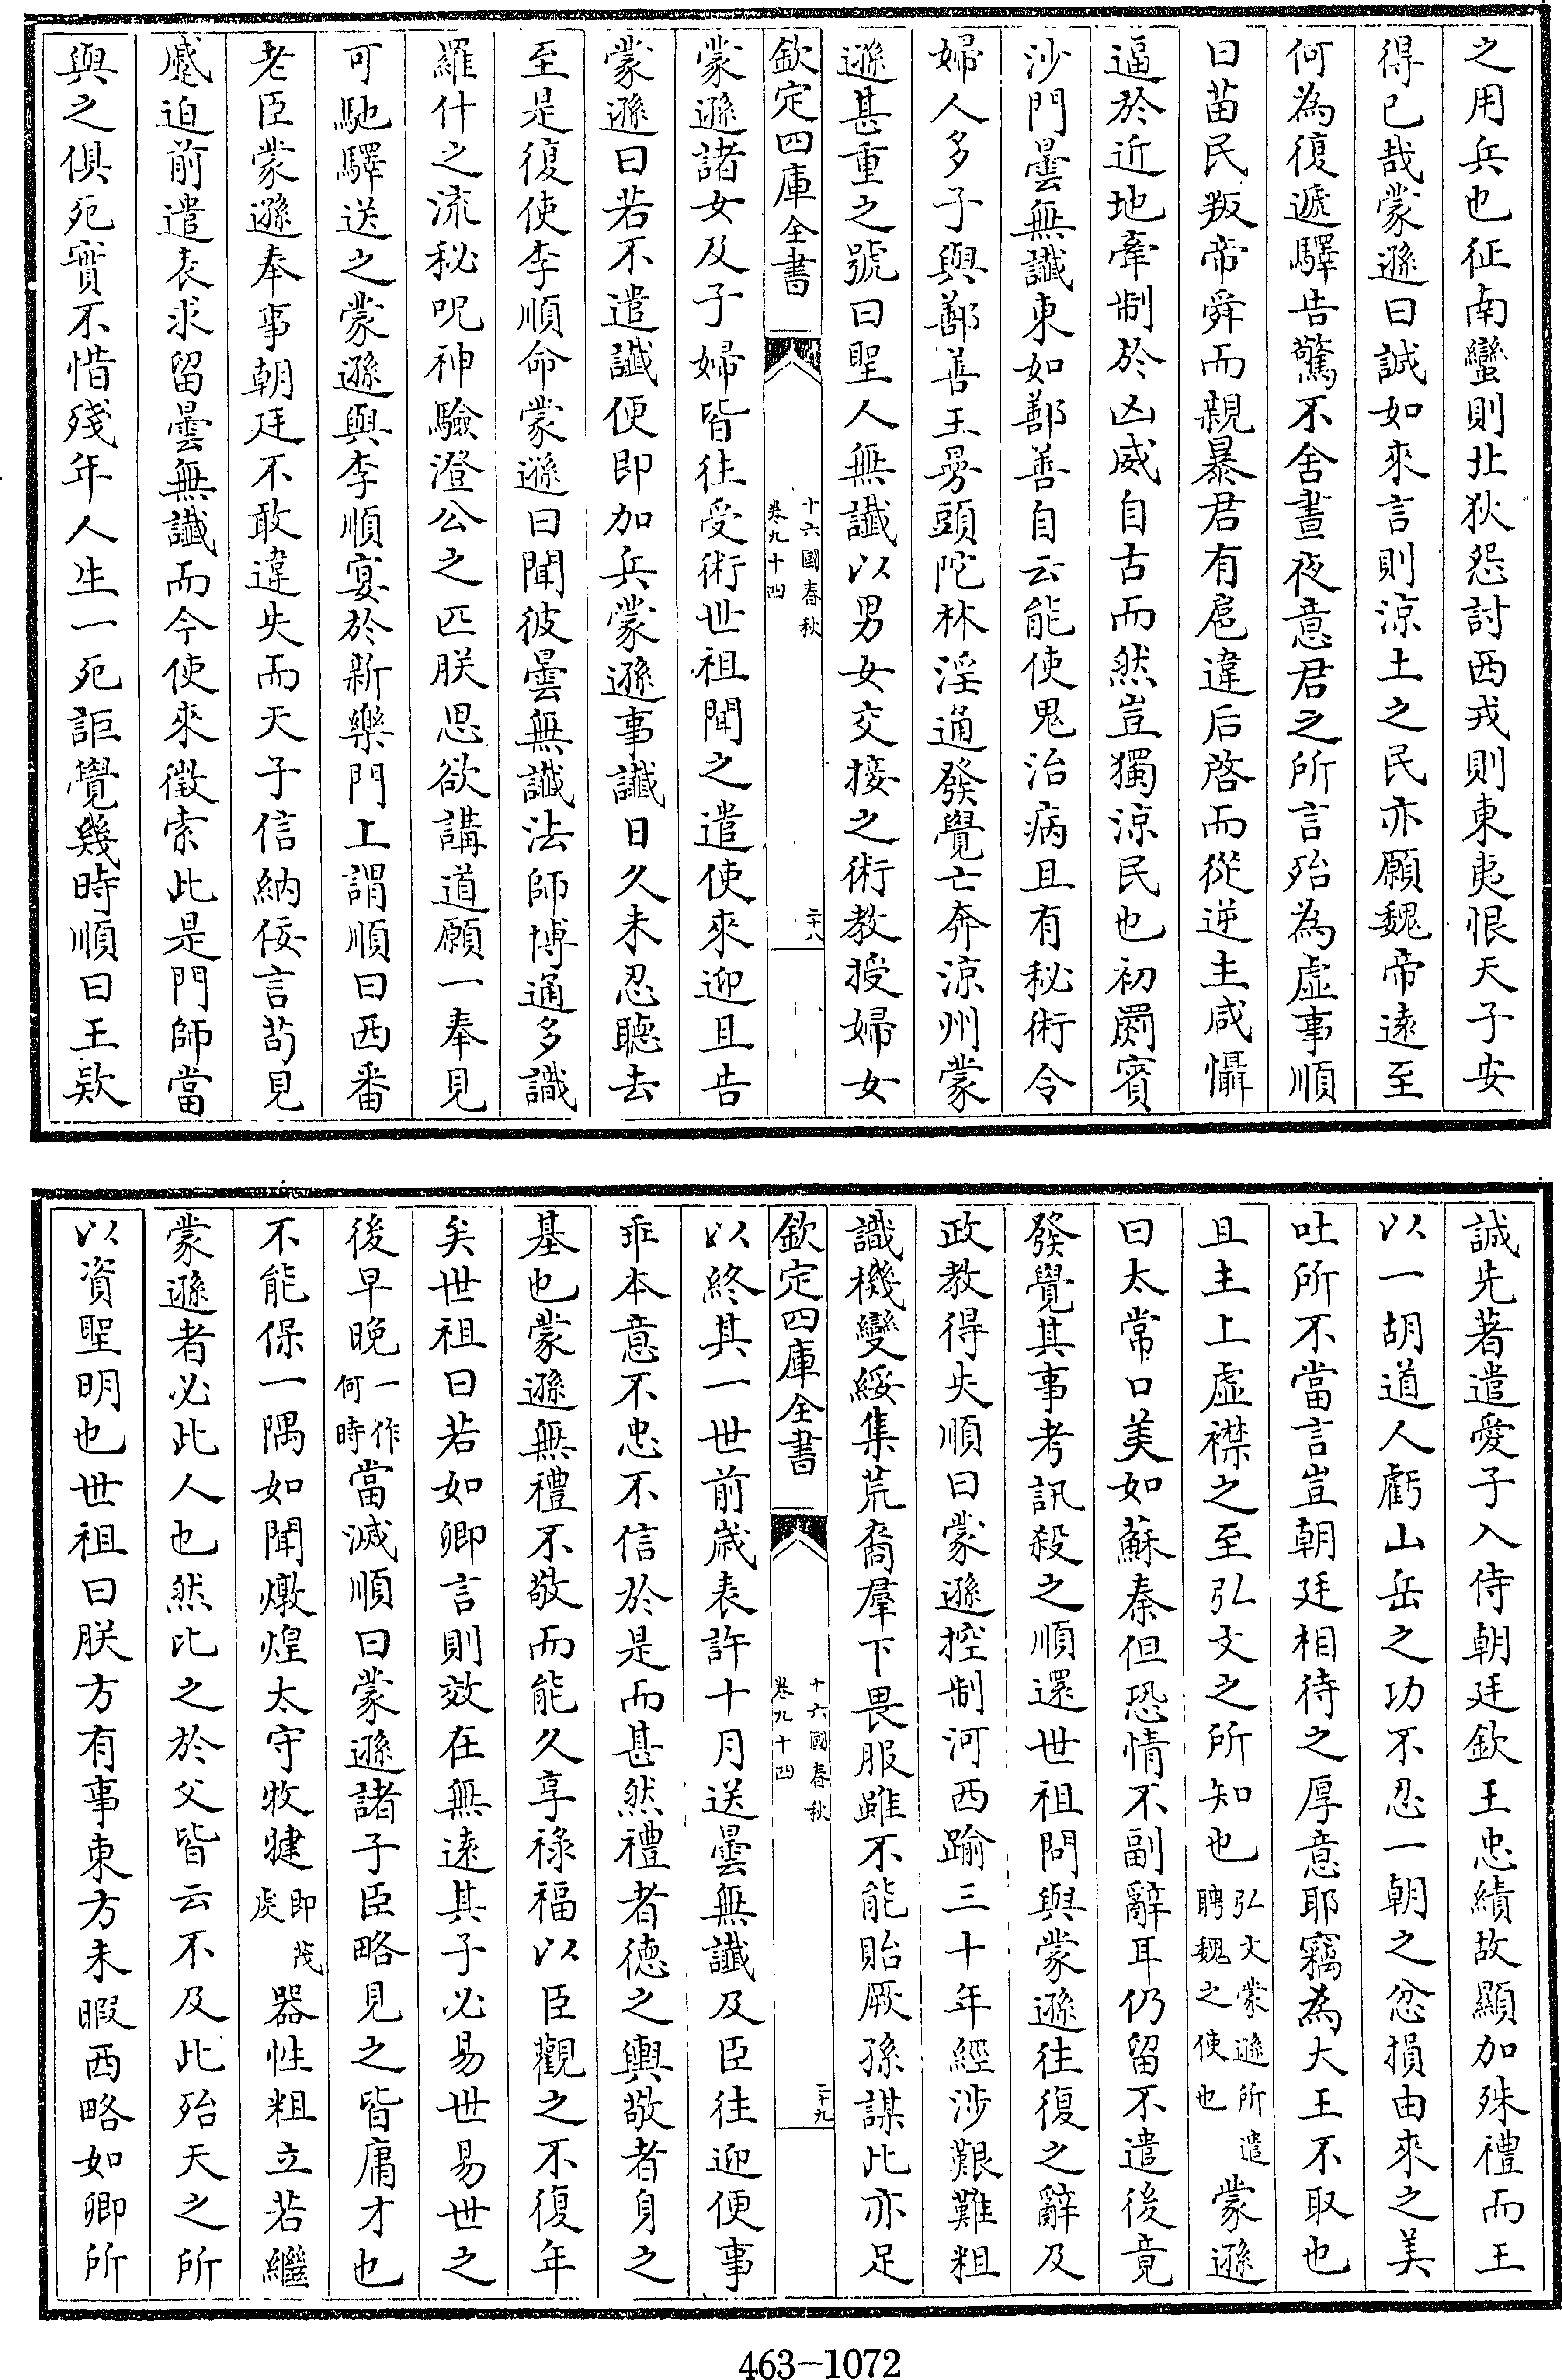 之用兵也征南蠻則北狄怨討西戎則東夷恨天子安
得已哉蒙遜曰誠如來言則涼土之民亦願魏帝遠至
何為復遞驛告驚不舍晝夜意君之所言殆為虛事順
曰苗民叛帝舜而親暴君有扈違后啓而從逆主咸懾
逼於近地牽制於凶威自古而然豈獨涼民也初罽賓
沙門曇無讖東如鄯善自云能使鬼治病且有秘術令
婦人多子與鄯善王㫄頭陀林淫通發覺亡奔涼州蒙
遜甚重之號曰聖人無讖以男女交接之術教授婦女
欽定四庫全書
十六國春秋
卷九十四
二十八
蒙遜諸女及子婦皆往受術世祖聞之遣使來迎且告
蒙遜曰若不遣讖便即加兵蒙遜事讖日久未忍聽去
至是復使李順命蒙遜曰聞彼曇無讖法師博通多識
羅什之流秘呪神驗澄公之匹朕思欲講道願一奉見
可馳驛送之蒙遜與李順宴於新樂門上謂順曰西番
老臣蒙遜奉事朝廷不敢違失而天子信納佞言苟見
蹙迫前遣表求留曇無讖而今使來徵索此是門師當
與之俱死實不惜殘年人生一死詎覺幾時順曰王欵
誠先著遣愛子入侍朝廷欽王忠績故顯加殊禮而王
以一胡道人虧山岳之功不忍一朝之忿損由來之美
吐所不當言豈朝廷相待之厚意耶竊為大王不取也
且主上虛襟之至弘文之所知也弘文蒙遜所遣聘魏之使也蒙遜
曰太常口美如蘇秦但恐情不副辭耳仍留不遣後竟
發覺其事考訊殺之順還世祖問與蒙遜往復之辭及
政教得失順曰蒙遜控制河西踰三十年經涉艱難粗
識機變綏集荒裔羣下畏服雖不能貽厥孫謀此亦足
欽定四庫全書
十六國春秋
卷九十四
二十九
以終其一世前歲表許十月送曇無讖及臣往迎便事
乖本意不忠不信於是而甚然禮者德之輿敬者身之
基也蒙遜無禮不敬而能久享祿福以臣觀之不復年
矣世祖曰若如卿言則效在無遠其子必易世易世之
後早晚一作何時當滅順曰蒙遜諸子臣略見之皆庸才也
不能保一隅如聞燉煌太守牧犍即茂虔器性粗立若繼
蒙遜者必此人也然比之於父皆云不及此殆天之所
以資聖明也世祖曰朕方有事東方未暇西略如卿所
463-1072